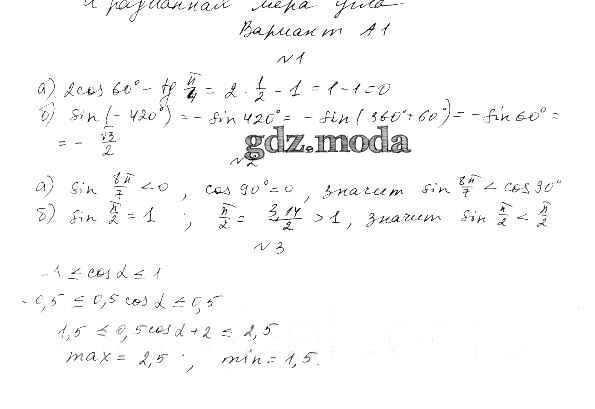 и радианная мера угла
Вариант А1
№1
а) 2cos 60° - tg π/4 = 2 · 1/2 - 1 = 1 - 1 = 0
б) sin(-420°) = - sin 420° = - sin(360° + 60°) = - sin 60° =
= - √3/2
gdz.moda
№2
а) sin 8π/7 < 0, cos 90° = 0, значит sin 8π/7 < cos 90°
б) sin π/2 = 1; π/2 = 3,14/2 > 1, значит sin π/2 < π/2
№3
-1 ≤ cos α ≤ 1
-0,5 ≤ 0,5 cos α ≤ 0,5
1,5 ≤ 0,5cos α + 2 ≤ 2,5
max = 2,5; min = 1,5.